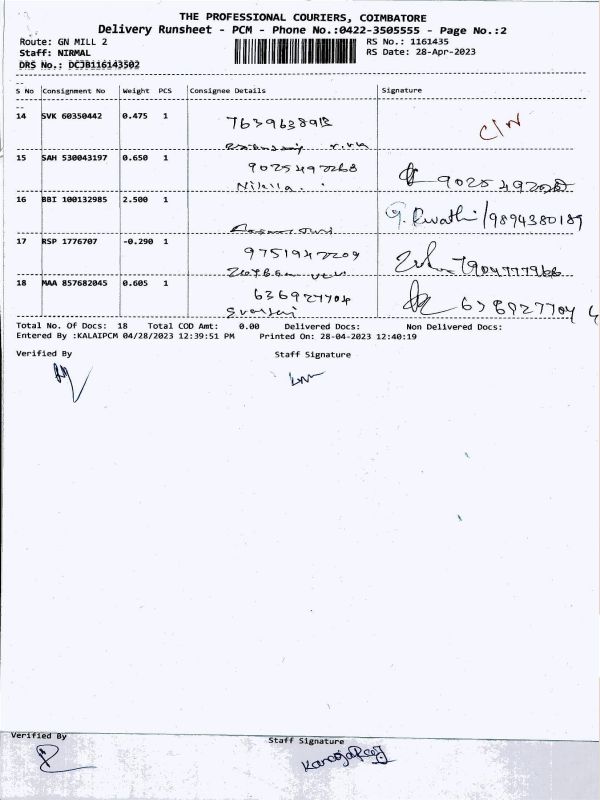 THE PROFESSIONAL COURIERS, COIMBATORE
Delivery Runsheet - PCM - Phone No.:0422-3505555 - Page No.:2
Route: GN MILL 2
RS No.: 1161435
Staff: NIRMAL
RS Date: 28-Apr-2023
DRS No.: DCJB116143502
S No Consignment No Weight PCS Consignee Details Signature
14 SVK 60350442 0.475 1
15 SAH 530043197 0.650 1 9025492268 9025492268
16 BBI 100132985 2.500 1 9894380189
17 RSP 1776707 -0.290 1 9751947209
18 MAA 857682045 0.605 1 636927704
Total No. Of Docs: 18 Total COD Amt: 0.00 Delivered Docs: Non Delivered Docs:
Entered By :KALAIPCM 04/28/2023 12:39:51 PM Printed On: 28-04-2023 12:40:19
Verified By Staff Signature
Verified By Staff Signature